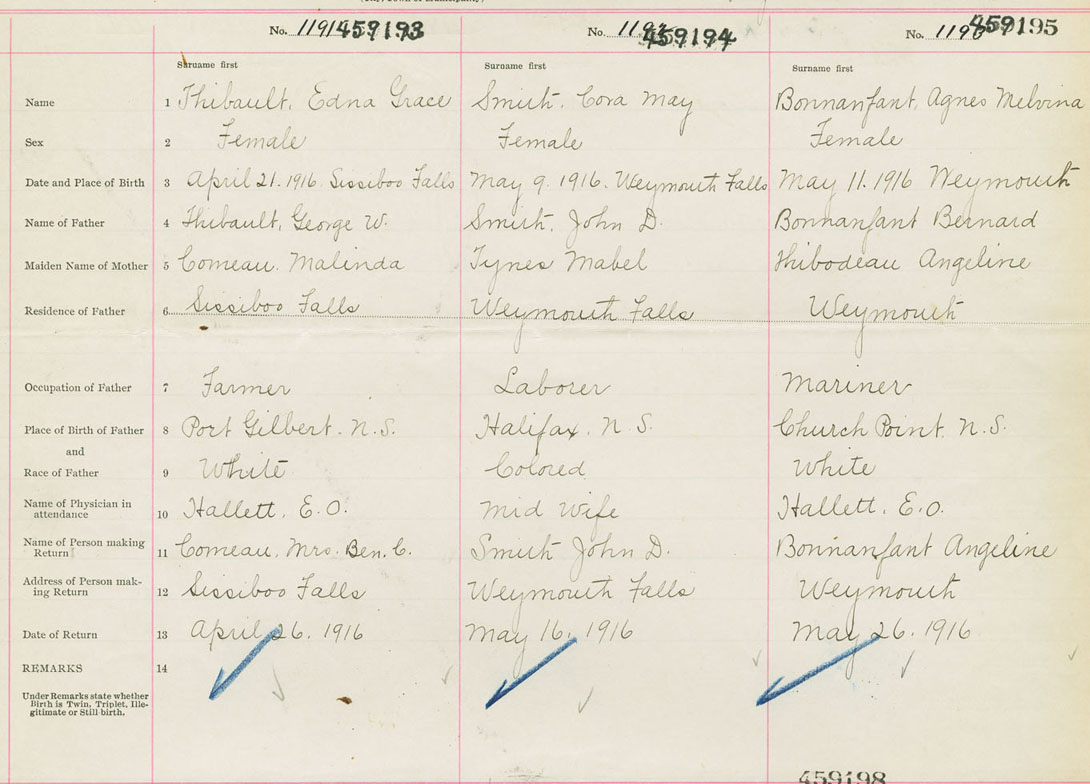 No. 1191 459193 No. 1192 459194 No. 1193 459195
Surname first Surname first Surname first
Name 1 Thibault, Edna Grace Smith, Cora May Bonnanfant, Agnes Melvina
Sex 2 Female Female Female
Date and Place of Birth 3 April 21. 1916. Sissiboo Falls May 9. 1916. Weymouth Falls May 11. 1916 Weymouth
Name of Father 4 Thibault, George W. Smith, John D. Bonnanfant Bernard
Maiden Name of Mother 5 Comeau, Malinda Tynes Mabel Thibodeau Angeline
Residence of Father 6 Sissiboo Falls Weymouth Falls Weymouth
Occupation of Father 7 Farmer Laborer Mariner
Place of Birth of Father 8 Port Gilbert. N.S. Halifax. N.S. Church Point. N.S.
and
Race of Father 9 White Colored White
Name of Physician in
attendance 10 Hallett, E.O. Mid Wife Hallett, E.O.
Name of Person making
Return 11 Comeau, Mrs. Ben. C. Smith John D. Bonnanfant Angeline
Address of Person mak-
ing Return 12 Sissiboo Falls Weymouth Falls Weymouth
Date of Return 13 April 26. 1916 May 16. 1916 May 26. 1916
REMARKS 14
Under Remarks state whether
Birth is Twin, Triplet, Ille-
gitimate or Still-birth.
459198